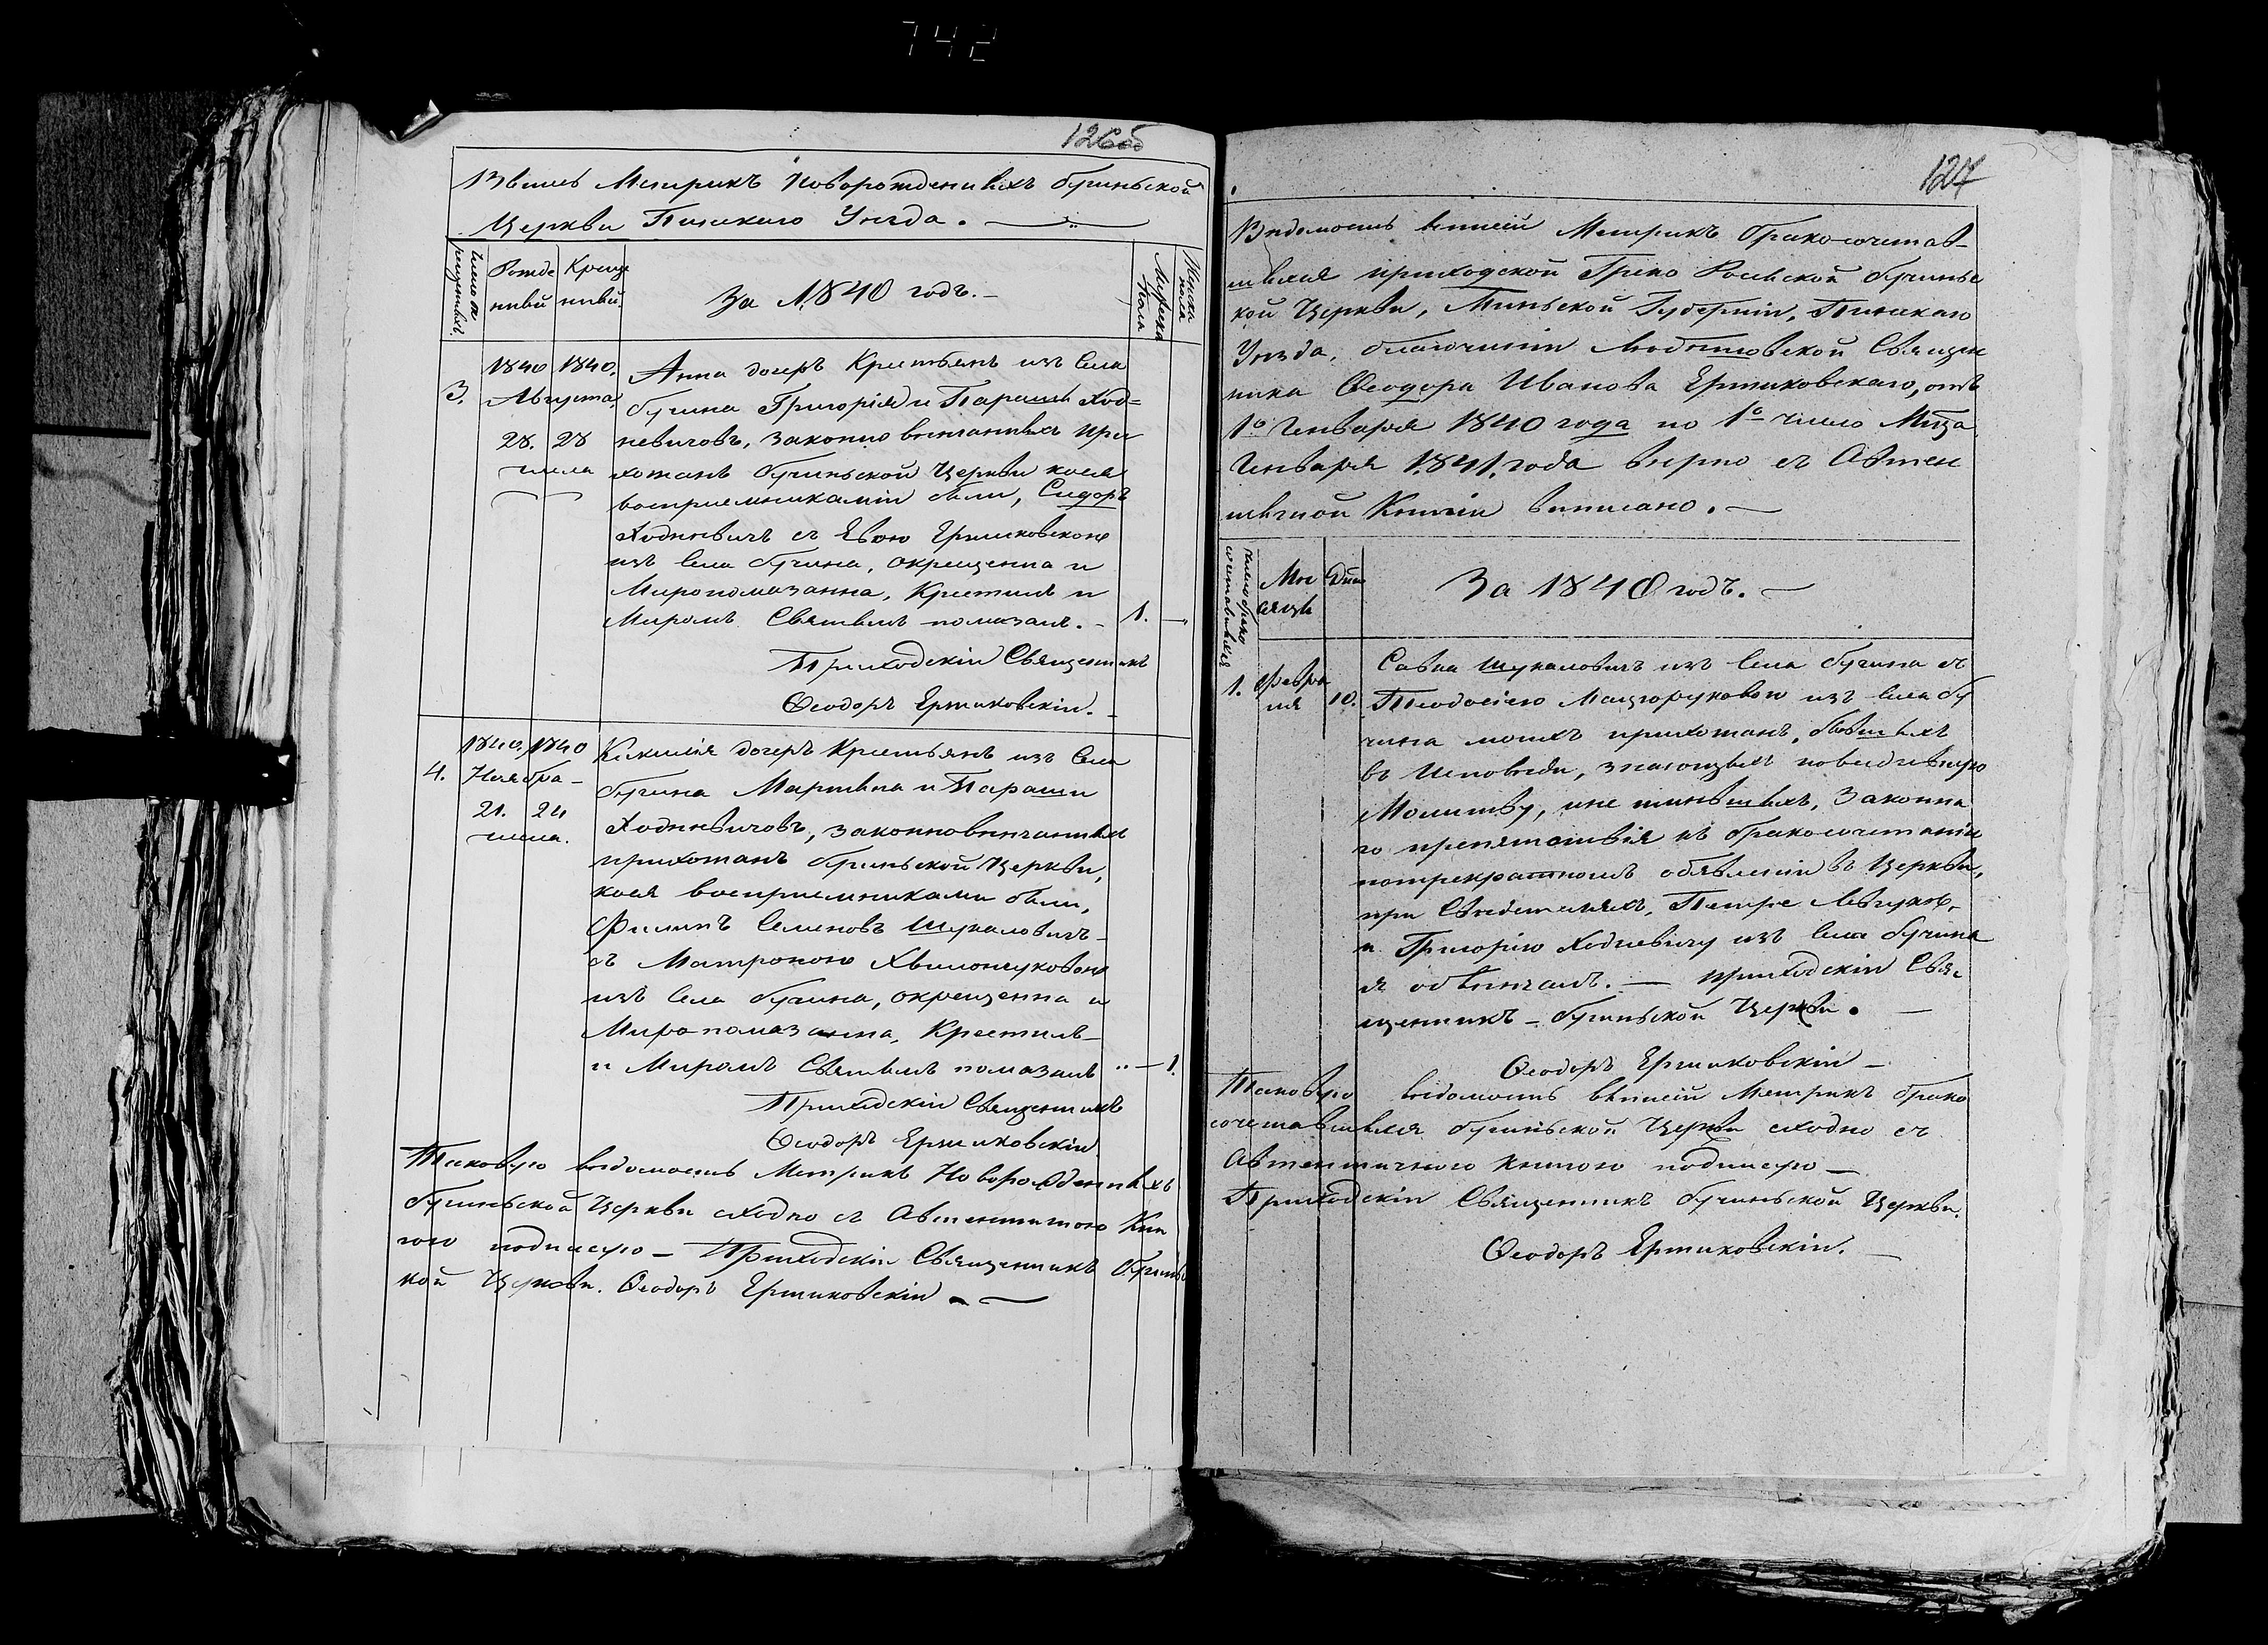 742
126об
Ввипсь Метрикъ Новорожденныхъ бучинской
Церкви Пинскаго Уезда.
Рожде Креще
нный нный.
За 1840 годъ.
Женска пола
Мужска пола
3.
1840 1840.
Августа
28. 28
числа
Анна дочерь Крестьянъ изъ Села
бучина Григорія и Параски Ход=
невичовъ, законно венчанныхъ при
хожанъ бучинской Церкви коея
воспріемниками были, Сидоръ
Ходневичъ съ Евою Ермиковскою
изъ Села бучина, окрещенна и
Миропомазанна, Крестилъ и
Миромъ Святымъ помазалъ. 1.
Приходскіи Священникъ
Ѳеодоръ Ермиковскіи.
4.
1840, 1840
Ноября
21. 24
числа.
дочерь Крестьянъ изъ Села
бучина Мартина и Параски
Ходневичовъ, законновенчанныхъ
прихожанъ бучинской Церкви,
коея воспріемниками были,
Филипъ Семеновъ Шукаловичъ
съ Матроною Хвилончуковою
изъ Села бучина, окрещенна и
Миропомазанна, Крестилъ
и Миромъ Святымъ помазалъ 1.
Приходскіи Священникъ
Ѳеодоръ Ермиковскіи
Таковую ведомость Метрикъ Новорожденныхъ
бучинской Церкви сходно съ Автентичною Кни
гою подписую — Приходскіи Священникъ бучинс
кой Церкви. Ѳеодоръ Ермиковскіи
127
Ведомость выписи Метрикъ бракосочетав-
шихся приходской Греко Російской бучинс
кой Церкви, Минской Губерніи, Пинскаго
Уезда, благочинія Священ
ника Ѳеодора Иванова Ермиковскаго, отъ
1го Генваря 1840 года по 1е число Мца
Генваря 1841 года верно съ Автен
тичной Книги выписано.
Число брако сочетавшихся
Мес
яцы
Дни
За 1840 годъ.
1.
Февра
ля
10.
Савка Шукаловичъ изъ Села бучина съ
Теодосіею изъ Села бу
чина моихъ прихожанъ, бывшихъ
въ Исповеди, знающыхъ повседневную
Молитву, не имевшихъ, Законна
го препятствія къ бракосочетанію
потрекратномъ обявленіи въ Церкви,
при Сведетеляхъ, Петре Левчуке,
и Григорію Ходневичу изъ Села бучина
я обвенчалъ. — Приходскіи Свя
щенникъ — бучинской Церкви.
Ѳеодоръ Ермиковскіи —
Таковую ведомость выписи Метрикъ брако
сочетавшихся бучинской Церкви сходно съ
Автентичною Книгою подписую —
Приходскіи Священникъ бучинской Церкви.
Ѳеодоръ Ермиковскіи.